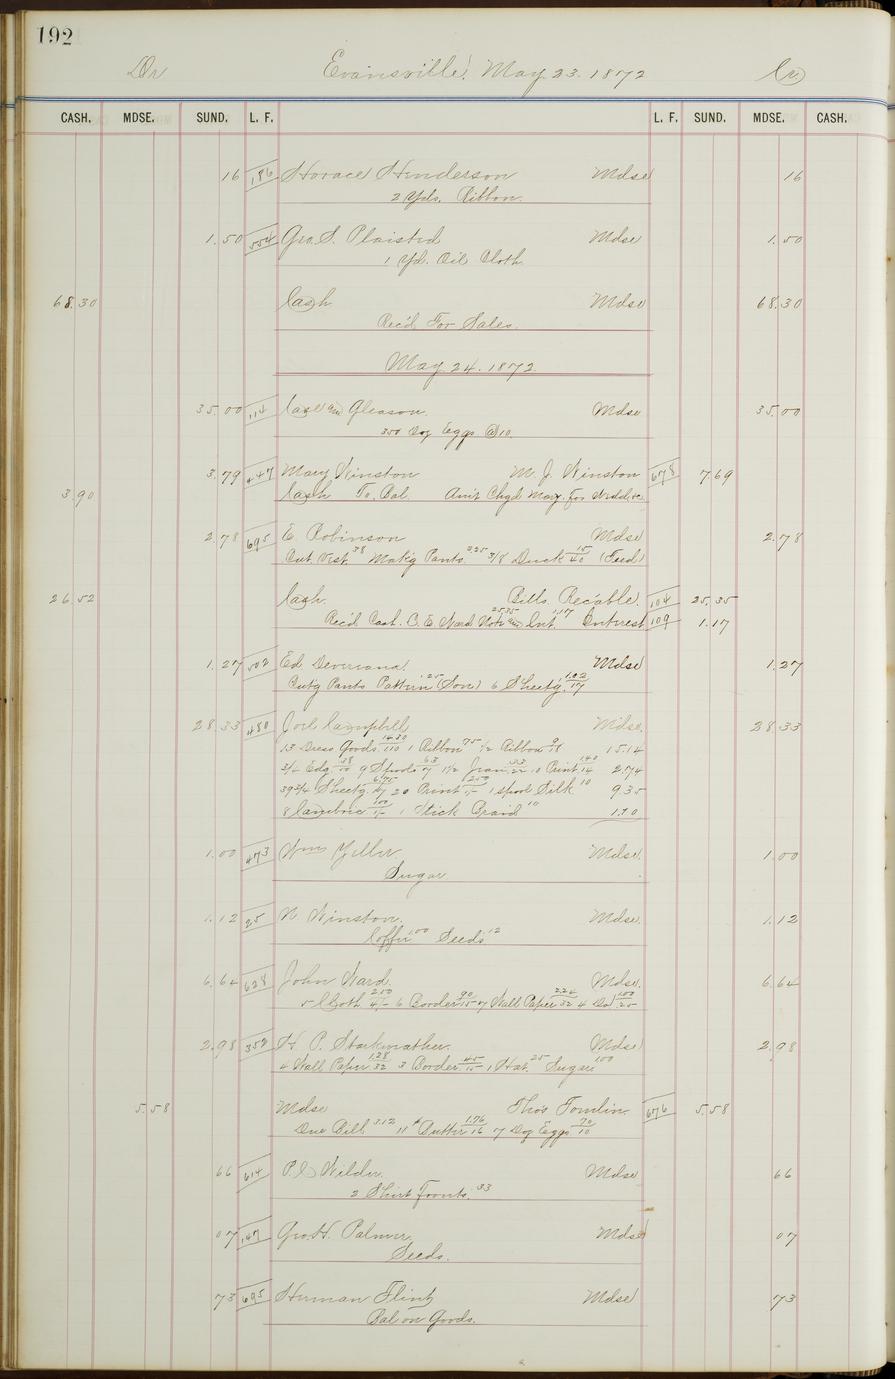 192
Dr Evansville, May 23. 1872 Cr
CASH. MDSE. SUND. L. F. L. F. SUND. MDSE. CASH.
16 186 Horace Henderson Mdse 16
2 Yds. Ribbon.
1.50 554 Geo. S. Plaisted Mdse 1.50
1 Yd. Oil Cloth
68.30 Cash Mdse 68.30
Rec'd For Sales.
May 24. 1872
35.00 114 Case & Gleason. Mdse 35.00
350 Doz Eggs @ 10.
3.79 447 Mary Winston M. J. Winston 678 7.69
3.90 Cash To. Bal. Am't Chgd Mary for
2.78 695 E. Robinson Mdse 2.78
Cut. Vest. 38 Mak'g Pants. 2.25 3/8 Duck 15/40 (Feed)
26.52 Cash. Bills. Rec'able. 104 25.35
Rec'd Cash. C. E. Ward Note 25.35 & Int. 1.17 Interest 109 1.17
1.27 502 Ed Devereaux Mdse 1.27
Cut'g Pants Pattern .25 (Son) 6 Sheet'g 1.02/17
28.33 480 Joel Campbell Mdse. 28.33
13 Dress Goods. 14.30/110 1 Ribbon 75 1/2 Ribbon 9/18 15.14
3/4 Edg. 9 Spools 63/7 1 1/2 Jean 33/22 10 Print 1.40/14 2.74
39 3/4 Sheet'g. 6.75/17 20 Print 2.50/1/- 1 spool Silk 10 9.35
8 Cambric 1.00/1/- 1 Stick Braid 10 1.10
1.00 473 Wm Yeller Mdse. 1.00
Sugar
1.12 25 N Winston. Mdse. 1.12
Coffee 1.00 Seeds 12
6.64 628 John Ward Mdse. 6.64
5 Cloth 2.50/4/- 6 Border 90/15 7 Wall Paper 2.24/32 4 Do 1.00/25
2.98 352 H P. Starkweather. Mdse 2.98
4 Wall Paper 1.28/32 3 Border 45/15 1 Hat. 25 Sugar 1.00
5.58 Mdse Thos Tomlin. 676 5.58
Due Bill 3.12 11 # Butter 1.76/16 7 Doz Eggs 70/10
66 614 P. C. Wilder. Mdse 66
2 Shirt Fronts. 33
07 147 Geo. H. Palmer. Mdse 07
Seeds.
73 695 Herman Flint Mdse 73
Bal on Goods.